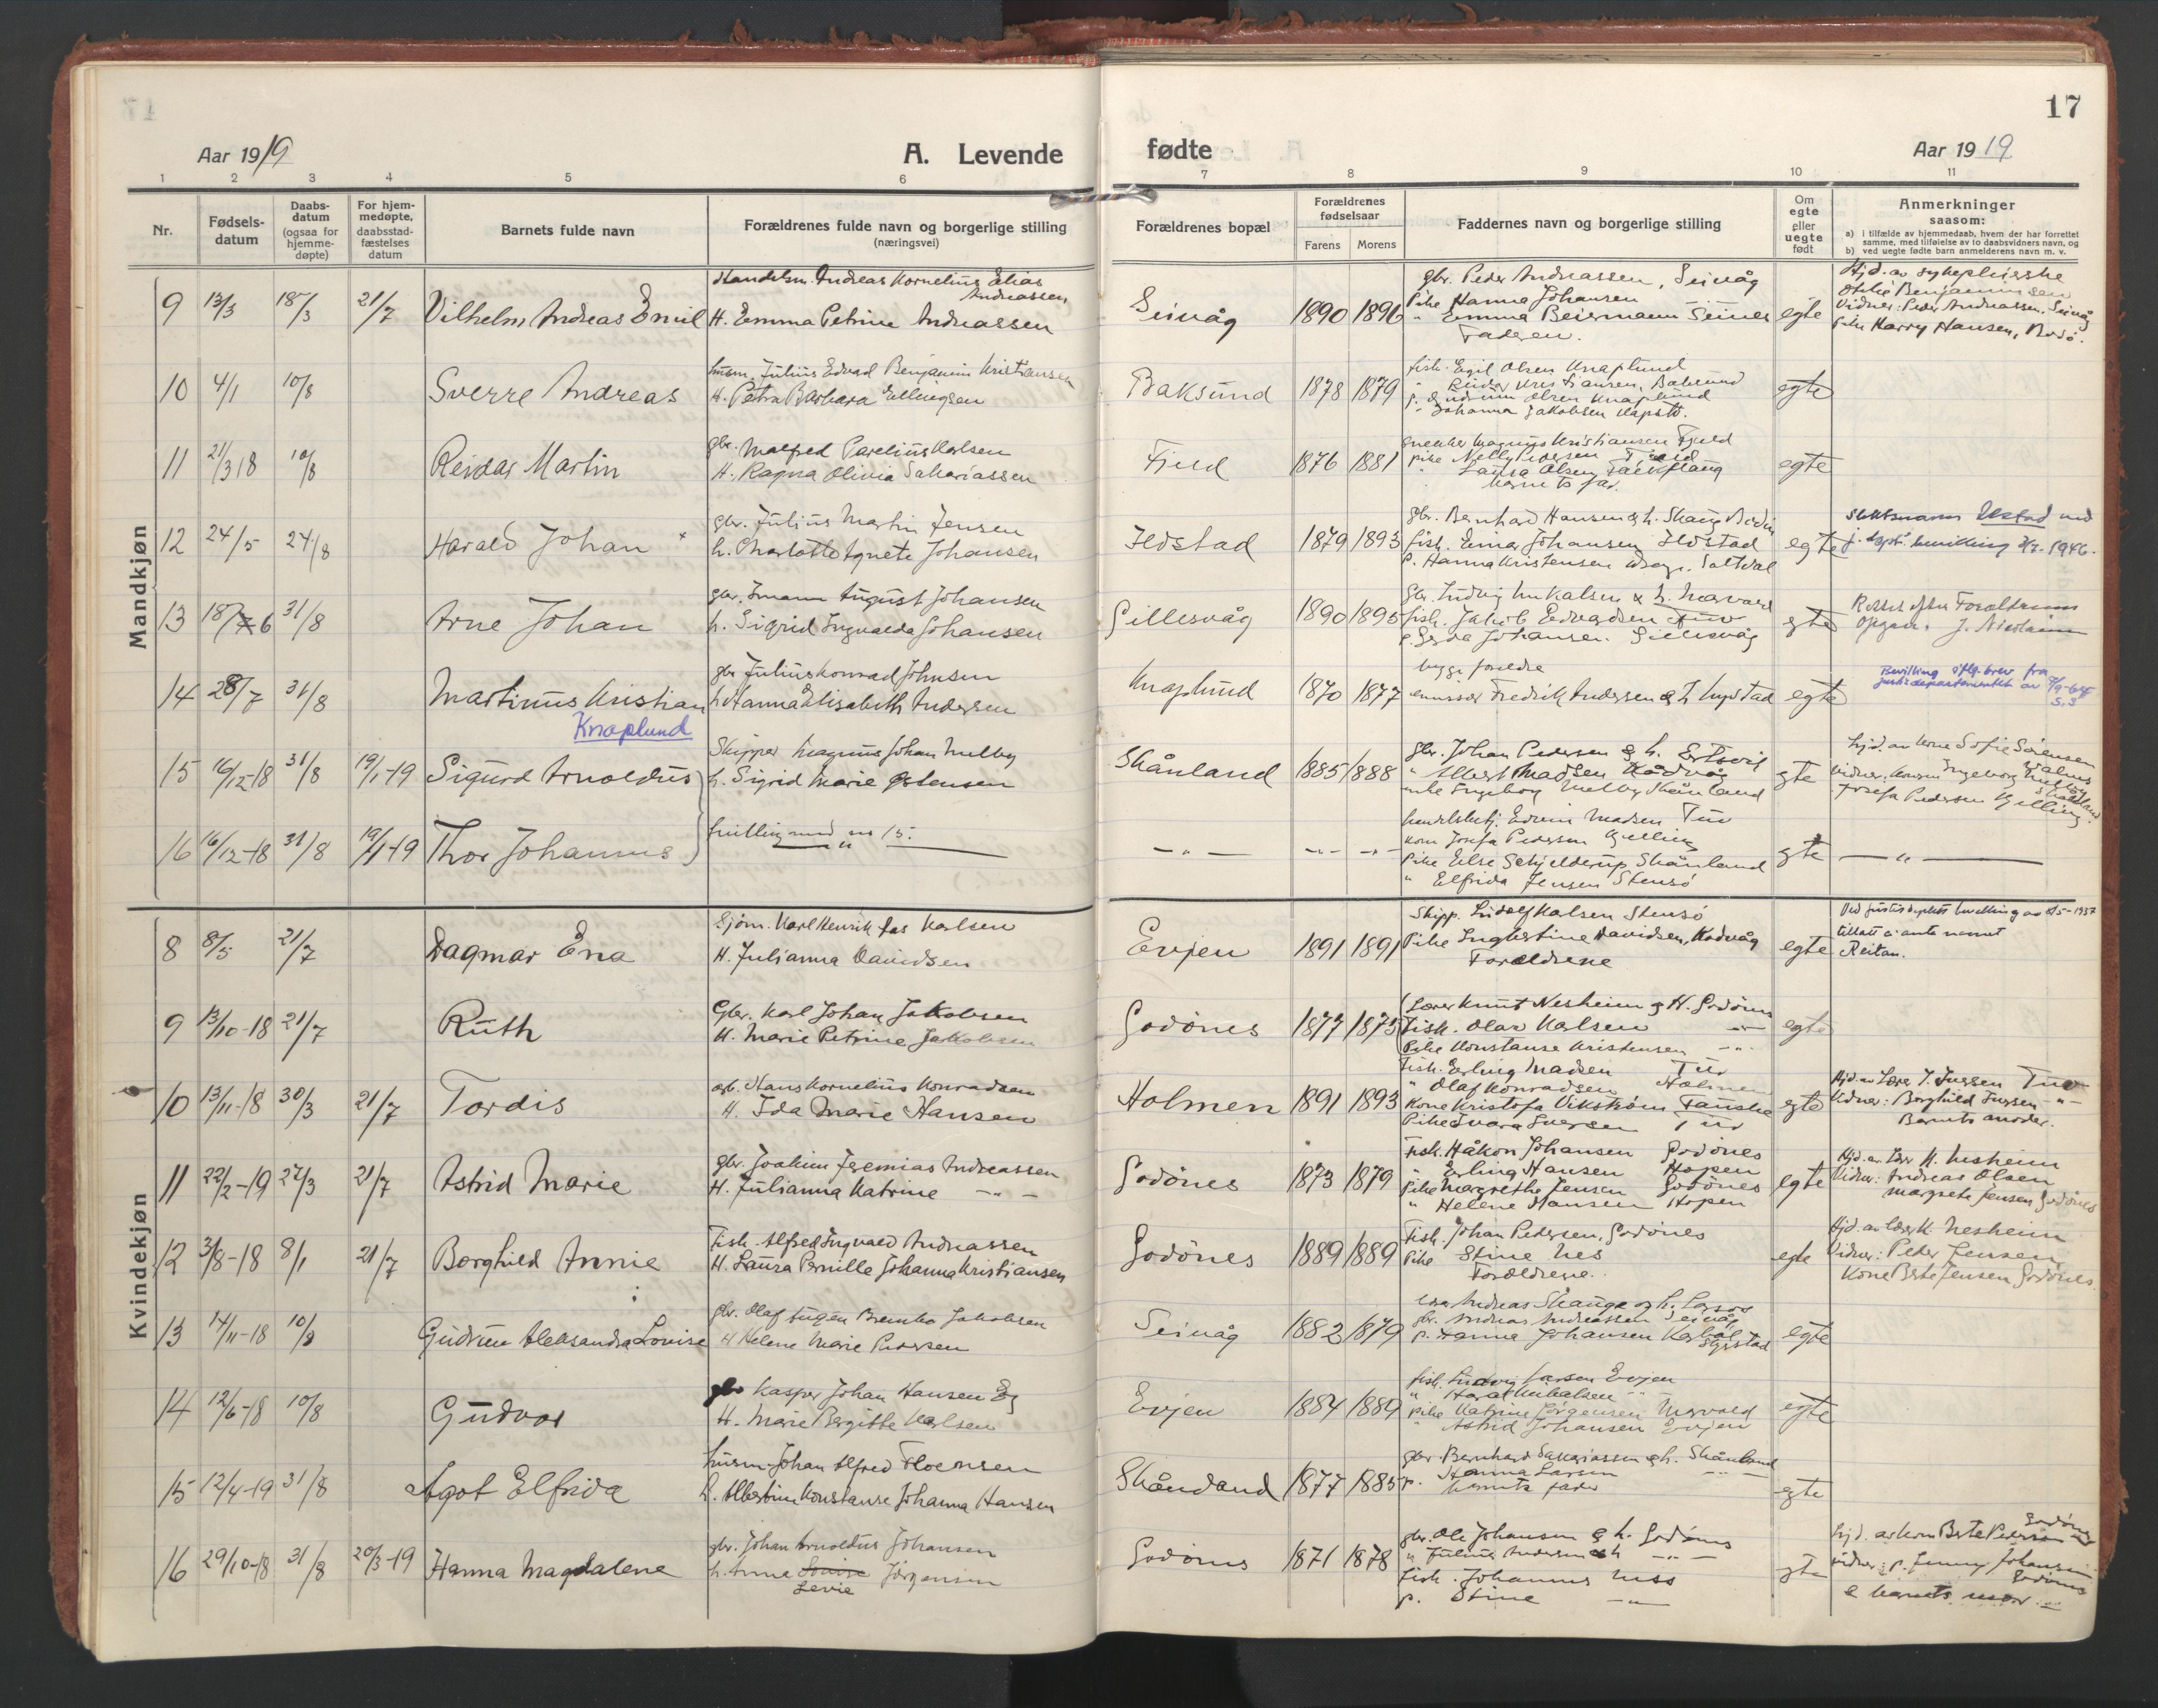 17
Aar 1919
A. Levende
fødte
Aar 1919
1 2 3 4 5 6 7 8 9 10 11
Nr.
Fødsels-
datum
Daabs-
datum
(ogsaa for
hjemme-
døpte)
For hjem-
medøpte,
daabsstad-
fæstelses
datum
Barnets fulde navn
Forældrenes fulde navn og borgerlige stilling
(næringsvei)
Forældrenes bopæl
Forældrenes
fødselsaar
Farens
Morens
Faddernes navn og borgerlige stilling
Om
egte
eller
uegte
født
Anmerkninger
saasom:
a) i tilfælde av hjemmedaab, hvem der har forrettet
samme, med tilføielse av to daabsvidners navn, og
b) ved uegte fødte barn anmelderens navn m. v.
Mandkjøn
9 13/3 18/3 21/7 Vilhelm Andreas Emil
Handelsm. Andreas Kornelius Elias
Andreassen
H. Emma Petrine Andreassen
Seivåg 1890 1896
gbr. Peder Andreassen, Seivåg
Pike Hanna Johansen
" Emma Beiermann Seines
Faderen.
egte
Hjd. av sykepleierske
Otilie Benjaminsen
Vidner: Peder Andreassen, Seivåg
Harry Hansen, Bodø.
10 4/1 10/8 Sverre Andreas
husm. Julius Edvad Benjamin Kristiansen
H. Petra Barbara Ellingsen
Baksund 1878 1879
fisk. Egil Olsen Knaplund
" Kristiansen, Baksund
p. Gudrun Olsen Knaplund
" Johanna Jakobsen
egte
11 21/3 18 10/8 Reidar Martin
gbr. Malfred Parelius Karlsen
H. Ragna Olivia Sakariassen
Fjeld 1876 1881
Magnus Kristiansen Fjeld
pike Nelly Pedersen Fjeld
" Laura Olsen
barnets far.
egte
12 24/5 24/8 Harald Johan
gbr. Julius Martin Jensen
h. Charlotte Agnete Johansen
Ildstad 1879 1893
gbr. Bernhard Hansen & h. Skaug
fisk. Einar Johansen Ildstad
p. Hanna Kristensen Saltdal
egte
Slektsnavn Ilstad ved
j. dept. bevilling 3/7. 1946.
13 18/6 31/8 Arne Johan
gbr. August Johansen
h. Sigrid Ingvalda Johansen
Gillesvåg 1890 1895
gbr. Ludvig Mikalsen & h. Marvald
fisk. Jakob Edvardsen Tuv
p. Gerda Johansen. Gillesvåg
egte
Rettet efter Forældrenes
Opgave. J. Nicolaisen
14 28/7 31/8 Martinus Kristian
Knaplund
gbr Julius Konrad Johnsen
h. Hanna Elisabeth Andersen
Knaplund 1870 1877
begge foreldre
Fredrik Andersen & h.
egte
Bevilling iflg. brev fra
Justisdepartementet av 7/9-64
S.S
15 16/12-18 31/8 19/1-19 Sigurd Arnoldus
Skipper Magnus Johan Melby
h. Sigrid Marie
Skånland 1885 1888
gbr. Johan Pedersen & h. Ertsvik
" Albert Madsen Kodvåg
enke Ingeborg Melby Skånland
egte
hjd. av kone Sofie Sørensen
vidner: Ingeborg Melby
Skånland
Josefa Pedersen Gjelling
16 16/12-18 31/8 19/1-19 Thor Johannes
tvilling med no 15.
— " — — " — — " —
handelsbetj. Edvin Madsen Tuv
kone Josefa Pedersen Gjelling
Pike Else Schjelderup Skånland
" Elfrida Jensen Stensø
egte
— " —
Kvindekjøn
8 8/5 21/7 Dagmar Ena
Sjøm. Karl Henrik Karlsen
H. Julianna Davidsen
Evjen 1891 1891
Skipp. Ludolf Karlsen Stensø
Pike Ingbertine Davidsen, Kodvåg
Forældrene
egte
Ved justisdeptets bevilling av 8/5-1937
tillatt å anta navnet
Reitan.
9 13/10-18 21/7 Ruth
Gbr. Karl Johan Jakobsen
H. Marie Petrine Jakobsen
Godønes 1877 1875
Lærer Knut Nesheim og H. Godønes
Fisk. Olav Karlsen — " —
Pike Konstanse Kristensen — " —
egte
10 13/11-18 30/3 21/7 Tordis
gb. Hans Kornelius Konradsen
H. Ida Marie Hansen
Holmen 1891 1893
Fisk. Erling Madsen Tuv
" Olaf Konradsen Holmen
Kone Kristofa Vikstrøm Fauske
Pike Ivara Iversen Tuv
egte
Hjd. av Lærer J. Iversen Tuv
Vidner: Borghild Iversen — " —
Barnets moder.
11 22/2-19 27/3 21/7 Astrid Marie
gbr. Joakim Jeremias Andreassen
H. Julianna Katrine — " —
Godønes 1873 1879
Fisk. Håkon Johansen Godønes
" Erling Hansen Hopen
Pike Margrethe Jensen Godønes
" Helene Hansen Hopen
egte
Hjd. av Lærer K. Nesheim
Vidner: Andreas Olsen
Margrete Jensen Godønes
12 3/8-18 8/1 21/7 Borghild Annie
Fisk. Alfred Ingvald Andreassen
H. Laura Pernille Johanna Kristiansen
Godönes 1889 1889
Fisk. Johan Pedersen, Godönes
Pike Stine Nes
Forældrene.
egte
Hjd. av Lærer K. Nesheim
Vidner: Peder Jensen
Kone Berte Jensen Godønes.
13 14/11-18 10/8 Gudrun Aleksandra Lovise
gbr. Olaf Eugen Brembo Jakobsen
H Helene Marie Pedersen
Seivåg 1882 1879
Andreas Skauge og h. Løpsos
gbr. Andreas Andreassen Seivåg
p. Hanna Johansen
egte
14 12/6-18 10/8 Gudvor
gbr Kasper Johan Hansen Eg
H. Marie Bergitte Karlsen
Evjen 1884 1889
fisk. Ludvig Larsen Evjen
" Haral Mikalsen " —
pike Katrine Jörgensen Marvold
" Astrid Johansen Evjen
egte
15 12/4-19 31/8 Agot Elfrida
husm. Johan Alfred Floensen
h. Albertine Konstanse Johanna Hansen
Skånland 1877 1885
gbr. Bernhard Sakariassen & h. Skånland
p. Hanna Larsen — " —
barnets fader
egte
16 29/10-18 31/8 20/3-19 Hanna Magdalene
gbr. Johan Arnoldus Johansen
h. Anne Lovise Jörgensen
Levie
Godønes 1871 1878
gbr. Ole Johansen & h. Godønes
" Julius Andersen & h — " —
fisk. Johannes Ness
p. Stine — " —
egte
Godønes
hjd. av kone Berte Pedersen
vidner: p. Jenny Johansen
Godønes
& barnets mor